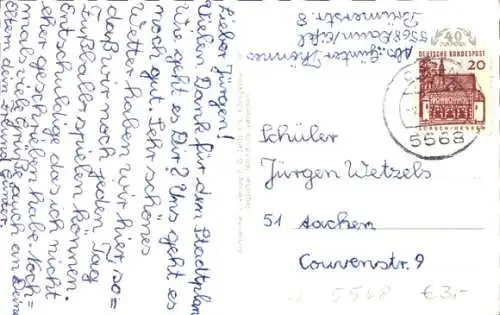 Abs. Günter Thönnes
5568 Daun/Eifel
str. 8
DEUTSCHE BUNDESPOST
20
LORSCH/HESSEN
5568
Lieber Jürgen!
Vielen Dank für den Stadtplan
Wie geht es Dir? Uns geht es
noch gut. Sehr schönes
Wetter haben wir hier so=
daß wir noch jeden Tag
Fußball spielen können.
Entschuldige das ich nicht
eher geschrieben habe. Noch=
mals viele Grüße auch an Deine
Eltern dein Freund Günter.
Schüler
Jürgen Wetzels
51 Aachen
Couvenstr. 9
5568
€ 3,-